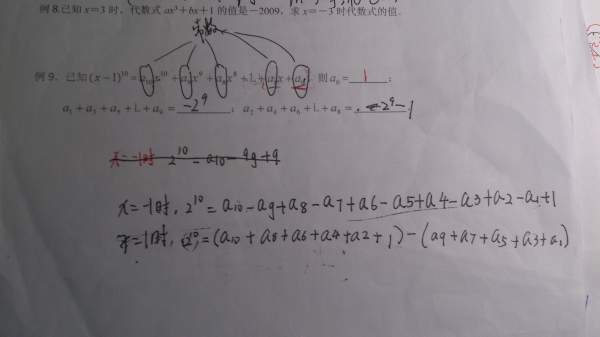 例8.已知x=3时，代数式ax³+bx+1的值是-2009，求x=-3时代数式的值.
常数
例9. 已知(x-1)¹⁰=a₁₀x¹⁰+a₉x⁹+a₈x⁸+L+a₁x+a₀，则a₀=1;
a₁+a₃+a₅+a₇+L+a₉=-2⁹; a₂+a₄+a₆+L+a₈=-2⁹-1
x=-1时 2¹⁰=a10-a9+a
x=-1时, 2¹⁰=a10-a9+a8-a7+a6-a5+a4-a3+a2-a1+1
x=-1时, 2¹⁰=(a10+a8+a6+a4+a2+1)-(a9+a7+a5+a3+a1)